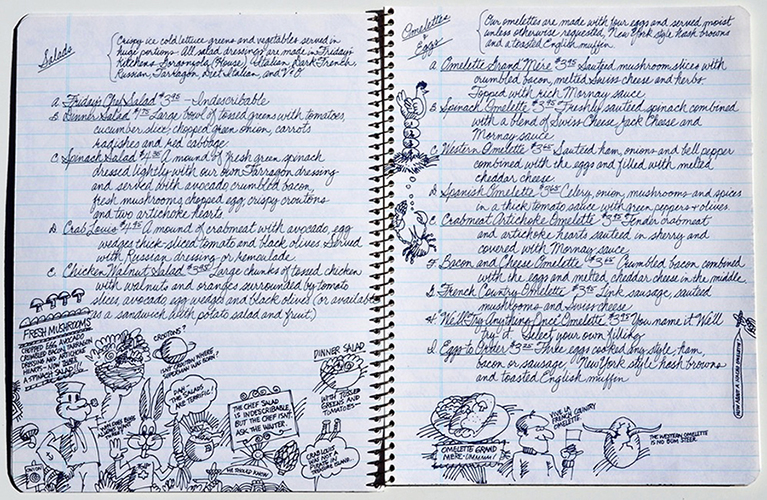 Salads
Crispy ice cold lettuce greens and vegetables served in
huge portions. All salad dressings are made in Friday's
kitchens. Gorgonzola, (House) Italian, Dark French,
Russian, Tarragon, Diet Italian, and V+O
A. Friday's Chef Salad $3.95 - Indescribable
B. Dinner Salad Large bowl of tossed greens with tomatoes,
cucumber slice, chopped green onion, carrots
radishes and red cabbage
C. Spinach Salad A mound of fresh green spinach
dressed lightly with our own Tarragon dressing
and served with avocado, crumbled bacon,
fresh mushrooms, chopped egg, crispy croutons
and two artichoke hearts
D. Crab Louis $4.95 A mound of crabmeat with avocado, egg
wedges, thick-sliced tomato and black olives. Served
with Russian dressing or remoulade
E. Chicken Walnut Salad Large chunks of tossed chicken
with walnuts and oranges surrounded by tomato
slices, avocado, egg wedges and black olives (or available
as a sandwich with potato salad and fruit)
FRESH MUSHROOMS
CHOPPED EGG, AVOCADO
CRUMBLED BACON, TARRAGON
DRESSING AND ARTICHOKE
HEARTS - NOW THAT'S
A SPINACH SALAD!!
CROUTONS?
THE SALADS
ARE TERRIFIC!
THE CHEF SALAD
IS INDESCRIBABLE,
BUT THE CHEF ISN'T.
ASK THE WAITER.
HE SHOULD KNOW
DINNER SALAD
WITH TOSSED
GREENS AND
TOMATOES
CRAB LOUIS
Omelettes
+
Eggs
Our omelettes are made with four eggs and served moist
unless otherwise requested, New York style hash browns
and a toasted English muffin
A. Omelette Grand Mère $3.45 Sautéed mushroom slices with
crumbled bacon, melted Swiss cheese and herbs.
Topped with rich Mornay sauce
B. Spinach Omelette $3.45 Freshly sautéed spinach combined
with a blend of Swiss Cheese, Jack Cheese and
Mornay sauce
C. Western Omelette $3.45 Sautéed ham, onions and bell pepper
combined with the eggs and filled with melted
cheddar cheese
D. Spanish Omelette Celery, onion, mushrooms and spices
in a thick tomato sauce with green peppers + olives
E. Crabmeat Artichoke Omelette Tender crabmeat
and artichoke hearts sautéed in sherry and
covered with Mornay sauce
F. Bacon and Cheese Omelette Crumbled bacon combined
with the egg and melted cheddar cheese in the middle
G. French Country Omelette Link sausage, sautéed
mushrooms and Swiss cheese
H. "We'll Try Anything Once" Omelette You name it. We'll
try it. Select your own filling
I. Eggs to Order Three eggs cooked any style, ham,
bacon or sausage, New York style hash browns
and toasted English muffin
OMELETTE GRAND
MÈRE
VIVE LA
FRENCH COUNTRY
OMELETTE
THE WESTERN OMELETTE
IS NO BUM STEER.